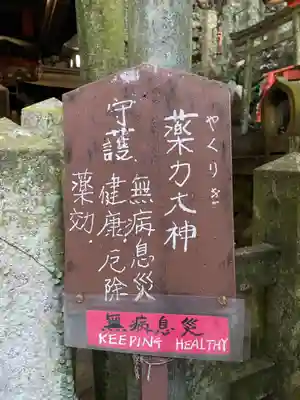 やくりき
薬力大神
守護、無病息災
健康・厄除
薬効・
無病息災
KEEPING HEALTHY